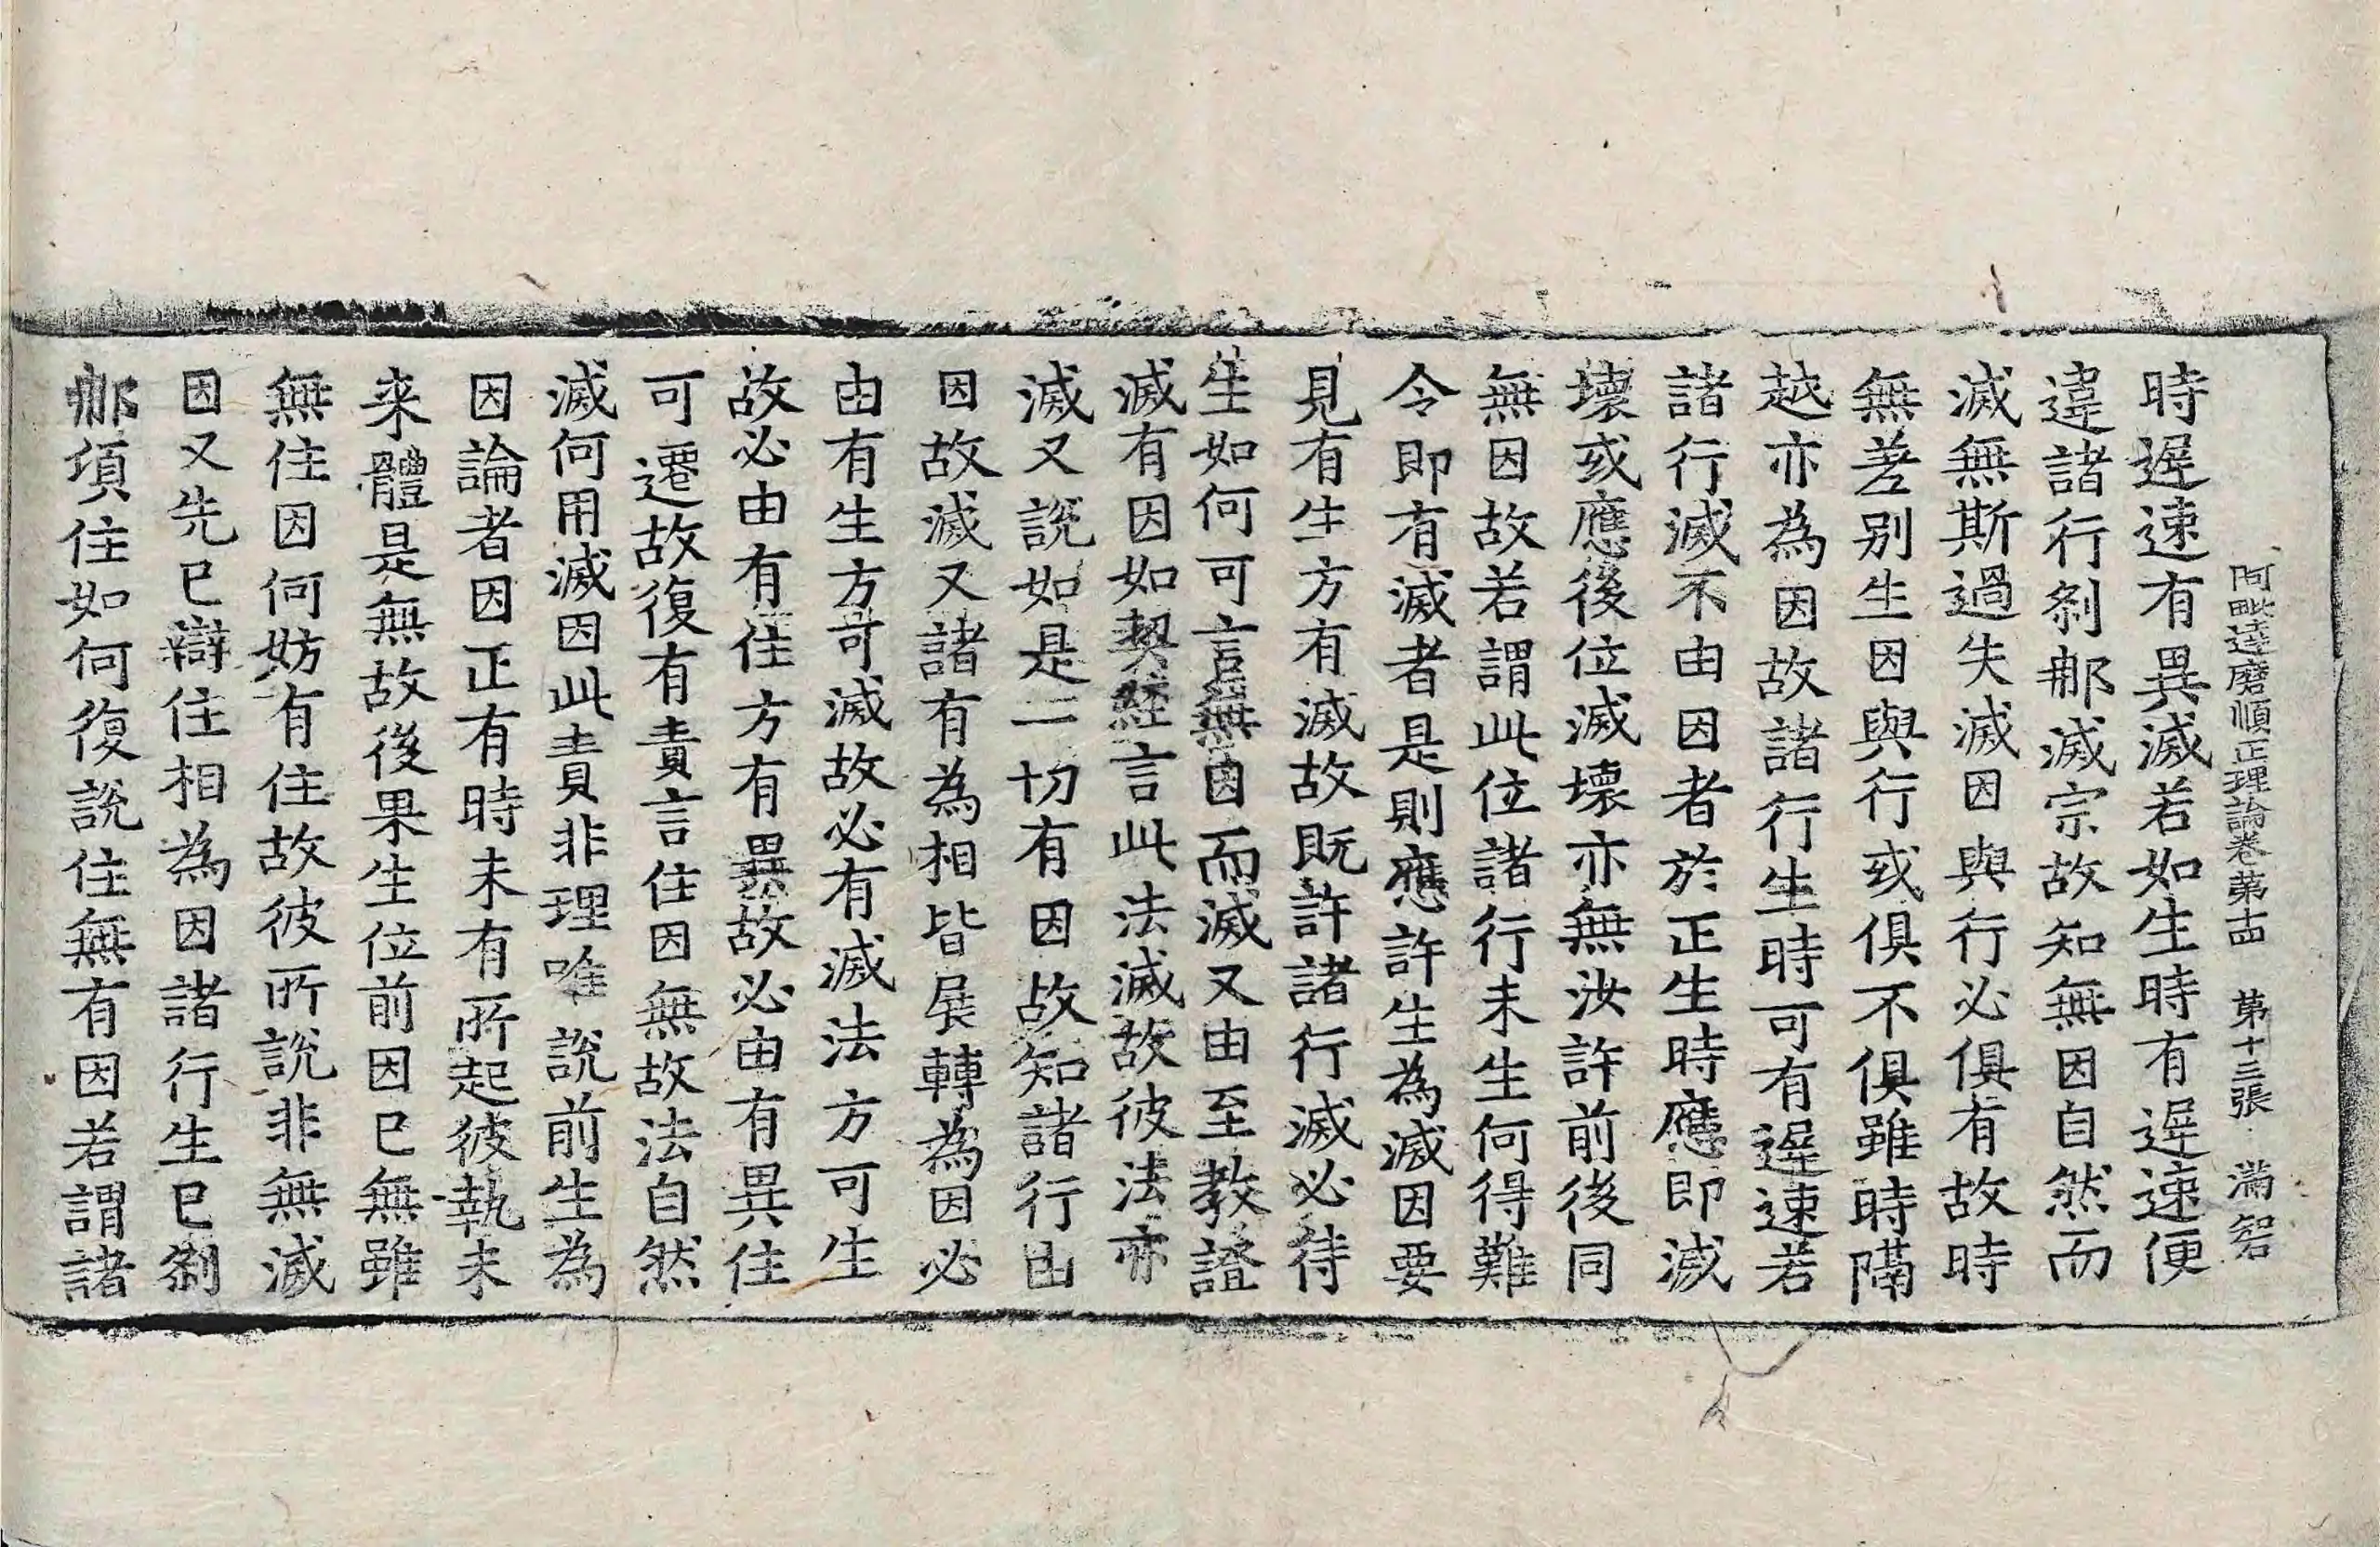 阿毗達磨順正理論卷第十四 第十三張 滿智
時遲速有異滅若如生時有遲速便
違諸行剎那滅宗故知無因自然而
滅無斯過失滅因與行必俱有故時
無差別生因與行或俱不俱雖時隔
越亦為因故諸行生時可有遲速若
諸行滅不由因者於正生時應即滅
壞或應後位滅壞亦無汝許前後同
無因故若謂此位諸行未生何得難
令即有滅者是則應許生為滅因要
見有生方有滅故既許諸行滅必待
生如何可言無因而滅又由至教證
滅有因如契經言此法滅故彼法亦
滅又說如是一切有因故知諸行由
因故滅又諸有為相皆展轉為因必
由有生方可滅故必有滅法方可生
故必由有住方有異故必由有異住
可遷故復有責言住因無故法自然
滅何用滅因此責非理唯說前生為
因論者因正有時未有所起彼執未
来體是無故後果生位前因已無雖
無住因何妨有住故彼所說非無滅
因又先已辯住相為因諸行生已剎
那頃住如何復說住無有因若謂諸